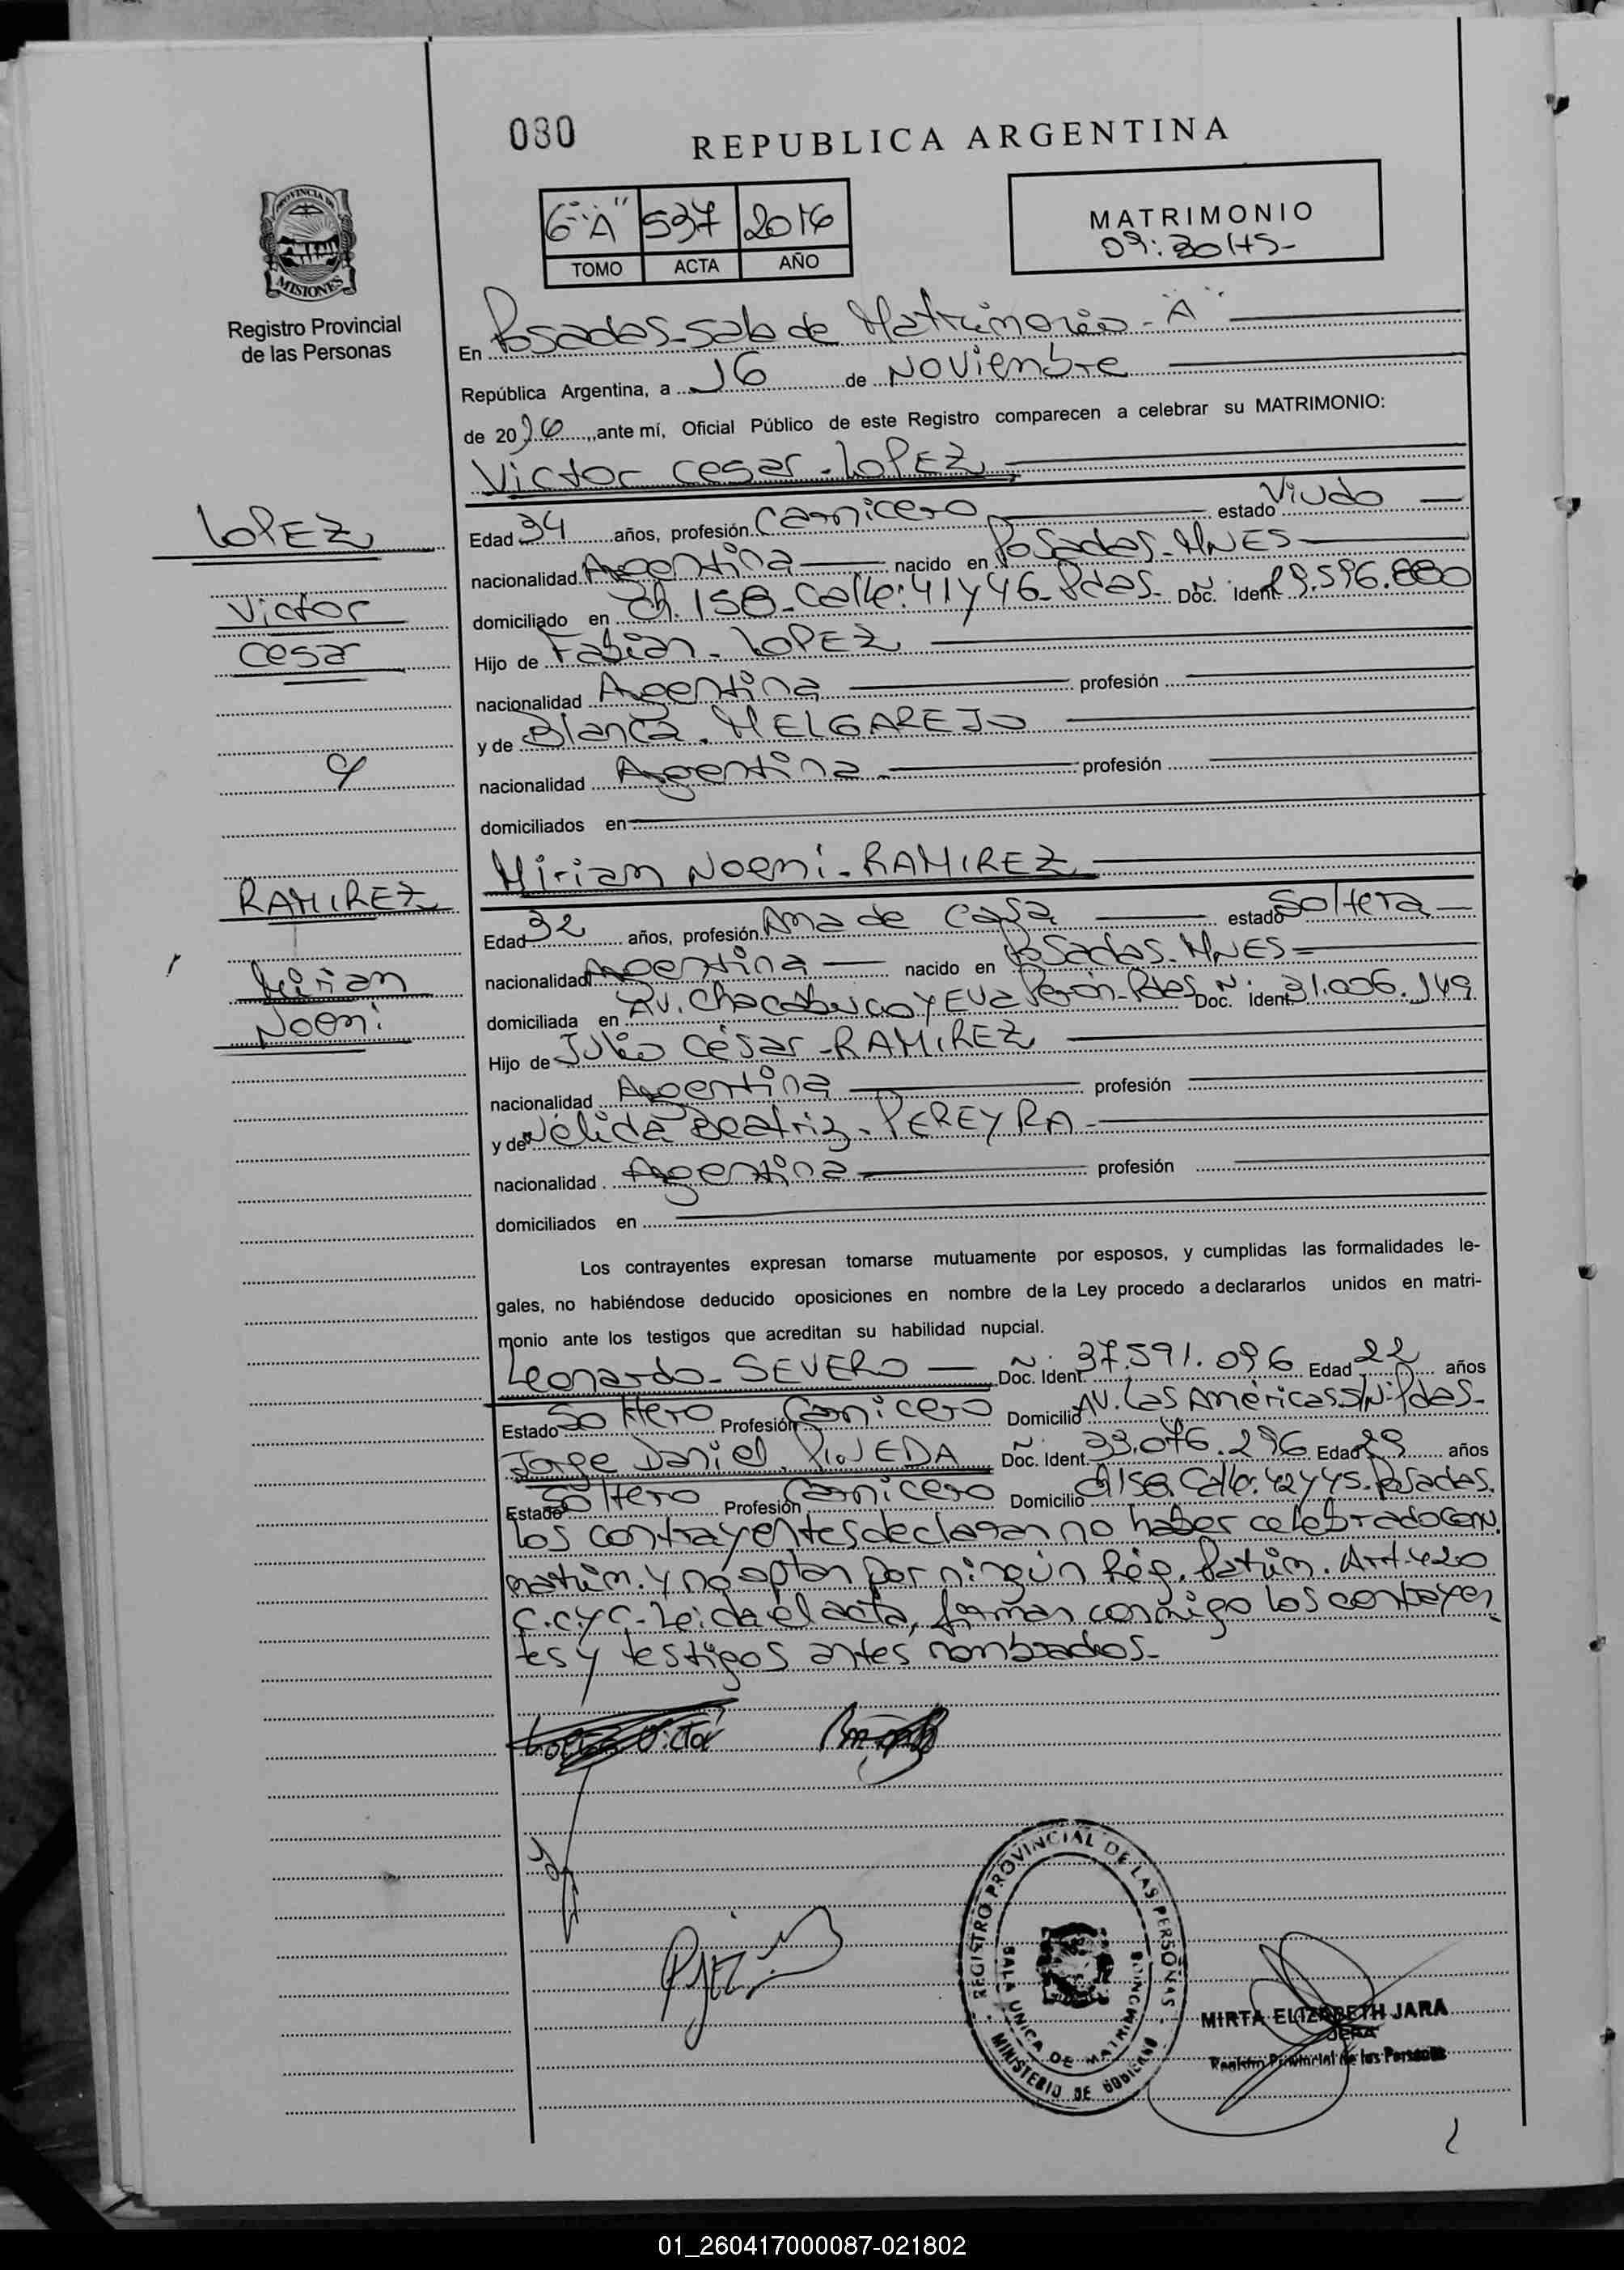 080
REPUBLICA ARGENTINA
6º "A" 537 2016
TOMO ACTA AÑO
MATRIMONIO
09:30HS-
PROVINCIA DE MISIONES
Registro Provincial
de las Personas
En Posadas-Sala de Matrimonio-"A"
República Argentina, a 16 de Noviembre
de 2016, ante mí, Oficial Público de este Registro comparecen a celebrar su MATRIMONIO:
Victor Cesar-LOPEZ
LOPEZ
Victor
Cesar
Edad 34 años, profesión Carnicero estado Viudo
nacionalidad Argentina nacido en Posadas-MNES
domiciliado en Ch.158-Calle:41y46-Pdas- Doc. Ident. Nº 29.596.880
Hijo de Fabián-LOPEZ
nacionalidad Argentina profesión
y de Blanca-MELGAREJO
nacionalidad Argentina- profesión
domiciliados en
y
Mirian Noemi-RAMIREZ
RAMIREZ
Mirian
Noemi
Edad 32 años, profesión Ama de Casa estado Soltera
nacionalidad Argentina nacido en Posadas-MNES
domiciliada en Av. Chacabuco y Eva Perón-Pdas Doc. Ident. Nº 31.006.149
Hijo de Julio César-RAMIREZ
nacionalidad Argentina profesión
y de Nélida Beatriz-PEREYRA-
nacionalidad Argentina profesión
domiciliados en
Los contrayentes expresan tomarse mutuamente por esposos, y cumplidas las formalidades le-
gales, no habiéndose deducido oposiciones en nombre de la Ley procedo a declararlos unidos en matri-
monio ante los testigos que acreditan su habilidad nupcial.
Leonardo-SEVERO Doc. Ident. 37.591.096 Edad 22 años
Estado Soltero Profesión Carnicero Domicilio AV. Las Américas S/N-Pdas-
Jorge Daniel PINEDA Doc. Ident. 33.076.296 Edad 29 años
Estado Soltero Profesión Carnicero Domicilio Ch158 Calle:42y45-Posadas.
Los contrayentes declaran no haber celebrado Conv.
matrim. y no optan por ningún Rég. Patrim. Art.420
C.C.y C.-Leída el acta, firman conmigo los contrayen
tes y testigos antes nombrados-
Lopez Victor
REGISTRO PROVINCIAL DE LAS PERSONAS
SALA UNICA DE MATRIMONIOS
MINISTERIO DE GOBIERNO
MIRTA ELIZABETH JARA
JEFA
Registro Provincial de las Personas
01_260417000087-021802